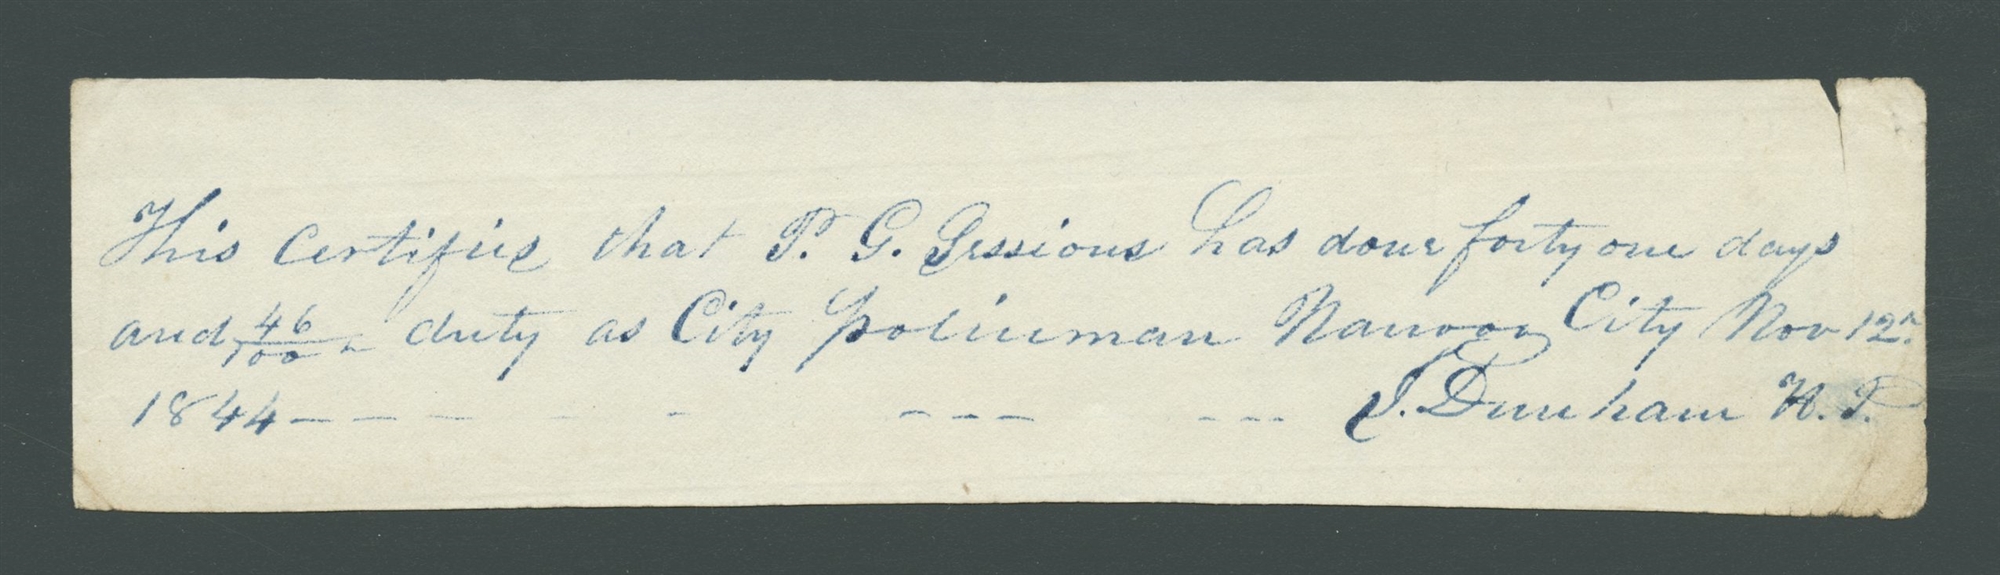 This certifies that P. G. Sessions has done forty one days
and 46/100 duty as City policeman Nauvoo City Nov 12th
1844 - - - - - - - - - - - J. Dunham H. P.